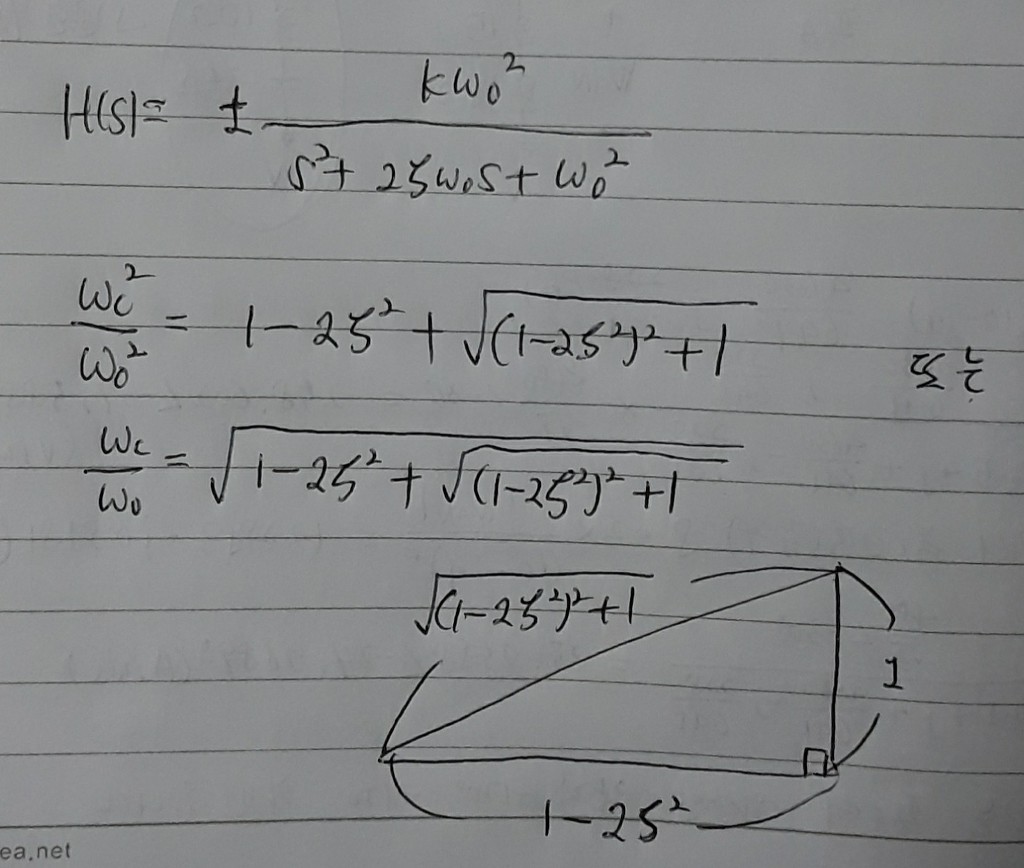 H(s)= ± kω₀² / s²+ 2ζω₀s+ ω₀²
ωc²/ω₀² = 1-2ζ² + √((1-2ζ²)²+1)
ωc/ω₀ = √(1-2ζ² + √((1-2ζ²)²+1))
√((1-2ζ²)²+1)
1
1-2ζ²
ea.net